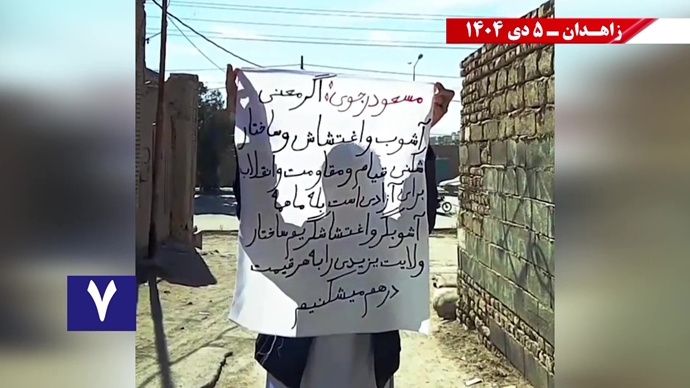 زاهدان ـ ۵ دی ۱۴۰۴
مسعود رجوی: اگر معنی
آشوب و اغتشاش و ساختار
شکنی قیام و مقاومت و انقلاب
برای آزادی است بله ما همه
آشوبگر و اغتشاشگریم ساختار
ولایت یزیدی را به هر قیمت
در هم میشکنیم
۷